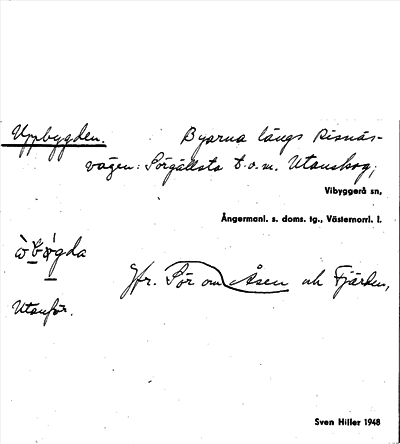 Uppbygden. Byarna längs Risnäs-
vägen: Sörgällsta t.o.m. Utanskog;
Vibyggerå sn,
Ångermanl. s. doms. tg., Västernorrl. l.
Jfr. Sör om Åsen och Fjärden,
Utanför.
Sven Hiller 1948